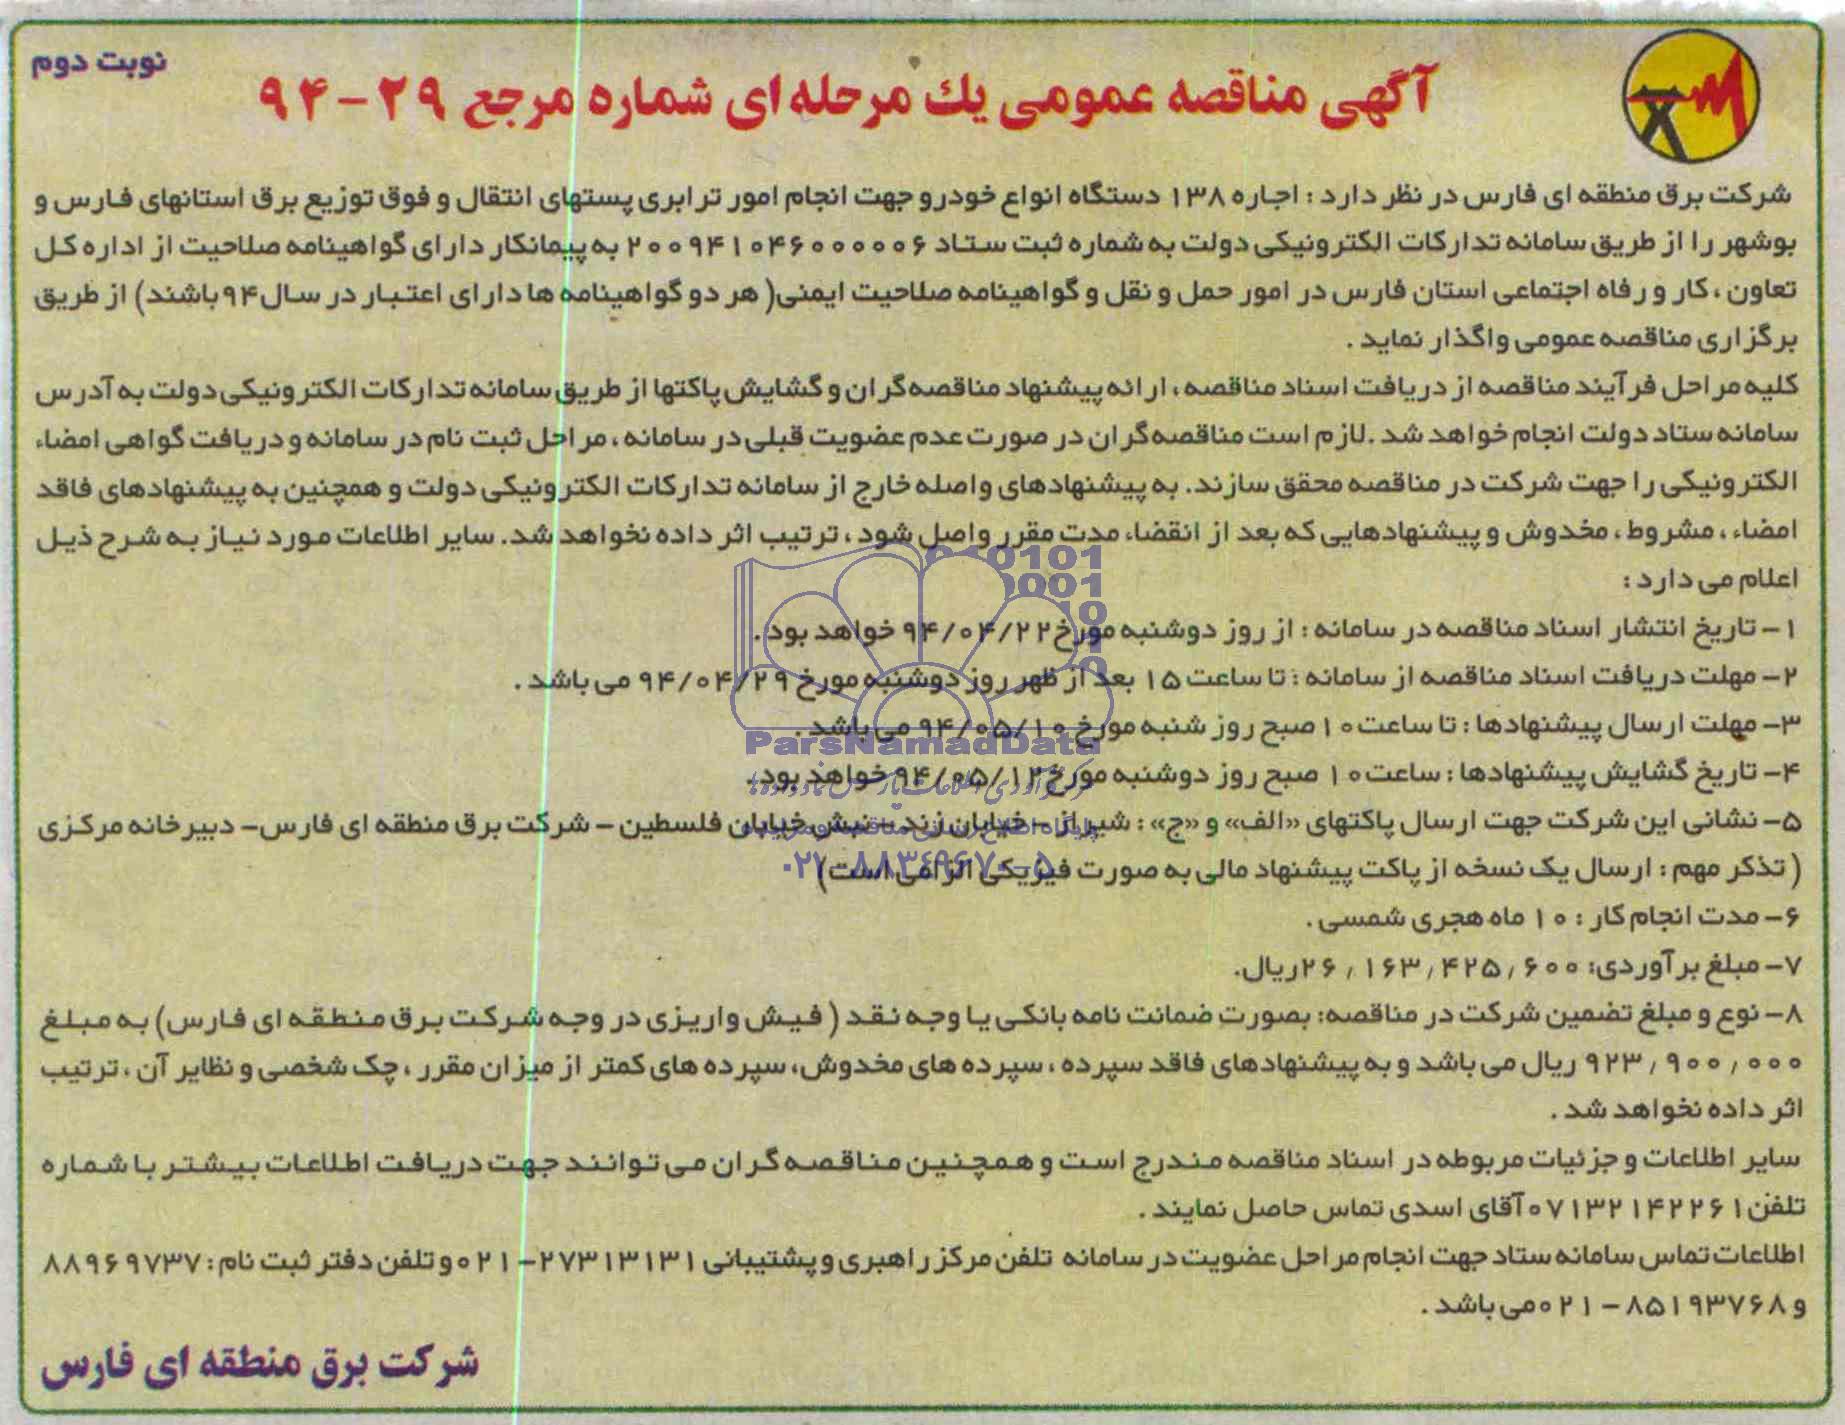 نوبت دوم
آگهی مناقصه عمومی یك مرحله ای شماره مرجع ۲۹-۹۴
شرکت برق منطقه ای فارس در نظر دارد : اجاره ۱۳۸ دستگاه انواع خودرو جهت انجام امور ترابری پستهای انتقال و فوق توزیع برق استانهای فارس و
بوشهر را از طریق سامانه تدارکات الکترونیکی دولت به شماره ثبت ستاد ۲۰۰۹۴۱۰۴۶۰۰۰۰۰۶ به پیمانکار دارای گواهینامه صلاحیت از اداره کل
تعاون ، کار و رفاه اجتماعی استان فارس در امور حمل و نقل و گواهینامه صلاحیت ایمنی( هر دو گواهینامه ها دارای اعتبار در سال ۹۴ باشند) از طریق
برگزاری مناقصه عمومی واگذار نماید .
کلیه مراحل فرآیند مناقصه از دریافت اسناد مناقصه ، ارائه پیشنهاد مناقصه‌گران و گشایش پاکتها از طریق سامانه تدارکات الکترونیکی دولت به آدرس
سامانه ستاد دولت انجام خواهد شد .لازم است مناقصه‌گران در صورت عدم عضویت قبلی در سامانه ، مراحل ثبت نام در سامانه و دریافت گواهی امضاء
الکترونیکی را جهت شرکت در مناقصه محقق سازند. به پیشنهادهای واصله خارج از سامانه تدارکات الکترونیکی دولت و همچنین به پیشنهادهای فاقد
امضاء ، مشروط ، مخدوش و پیشنهادهایی که بعد از انقضاء مدت مقرر واصل شود ، ترتیب اثر داده نخواهد شد. سایر اطلاعات مورد نیاز به شرح ذیل
اعلام می دارد :
۱- تاریخ انتشار اسناد مناقصه در سامانه : از روز دوشنبه مورخ ۹۴/۰۴/۲۲ خواهد بود .
۲- مهلت دریافت اسناد مناقصه از سامانه : تا ساعت ۱۵ بعد از ظهر روز دوشنبه مورخ ۹۴/۰۴/۲۹ می باشد .
۳- مهلت ارسال پیشنهادها : تا ساعت ۱۰ صبح روز شنبه مورخ ۹۴/۰۵/۱۰ می باشد .
۴- تاریخ گشایش پیشنهادها : ساعت ۱۰ صبح روز دوشنبه مورخ ۹۴/۰۵/۱۲ خواهد بود.
۵- نشانی این شرکت جهت ارسال پاکتهای «الف» و «ج» : شیراز - خیابان زند - نبش خیابان فلسطین - شرکت برق منطقه ای فارس- دبیرخانه مرکزی
( تذکر مهم : ارسال یک نسخه از پاکت پیشنهاد مالی به صورت فیزیکی الزامی است)
۶- مدت انجام کار : ۱۰ ماه هجری شمسی .
۷- مبلغ برآوردی: ۲۶٫۱۶۳٫۴۲۵٫۶۰۰ریال.
۸- نوع و مبلغ تضمین شرکت در مناقصه: بصورت ضمانت نامه بانکی یا وجه نقد ( فیش واریزی در وجه شرکت برق منطقه ای فارس) به مبلغ
۹۲۳٫۹۰۰٫۰۰۰ ریال می باشد و به پیشنهادهای فاقد سپرده ، سپرده های مخدوش، سپرده های کمتر از میزان مقرر ، چک شخصی و نظایر آن ، ترتیب
اثر داده نخواهد شد .
سایر اطلاعات و جزئیات مربوطه در اسناد مناقصه مندرج است و همچنین مناقصه گران می توانند جهت دریافت اطلاعات بیشتر با شماره
تلفن ۰۷۱۳۲۱۴۲۲۶۱ آقای اسدی تماس حاصل نمایند .
اطلاعات تماس سامانه ستاد جهت انجام مراحل عضویت در سامانه تلفن مرکز راهبری و پشتیبانی ۲۷۳۱۳۱۳۱-۰۲۱ و تلفن دفتر ثبت نام : ۸۸۹۶۹۷۳۷
و ۸۵۱۹۳۷۶۸-۰۲۱ می باشد .
شرکت برق منطقه ای فارس
ParsNamadData
۰۲۱-۸۸۳۴۹۶۷۰-۵